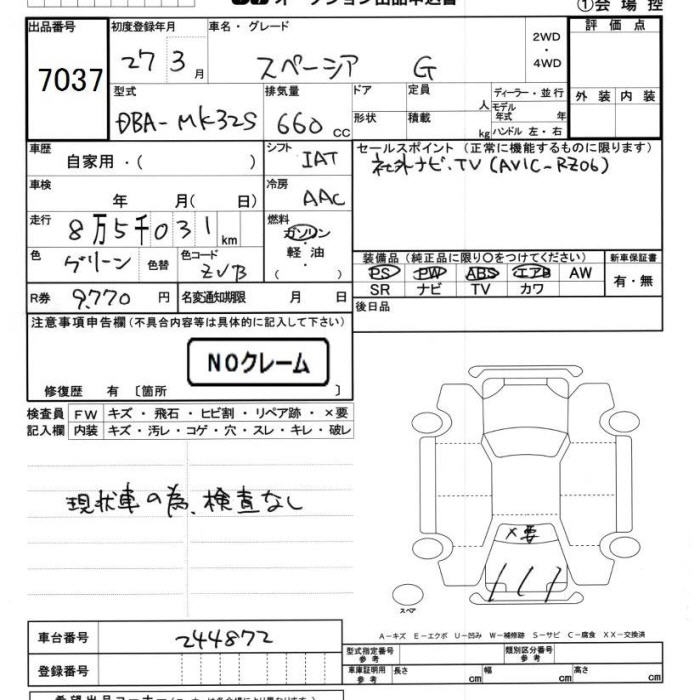 オークション出品申込書
①会場控
出品番号 初度登録年月 車名・グレード 2WD・4WD 評価点
7037 27 3月 スペーシア G
型式 排気量 ドア 定員 人 ディーラー・並行 外装 内装
DBA-MK32S 660 CC 形状 積載 kg モデル年式 年 ハンドル 左・右
車歴 自家用・( ) シフト IAT セールスポイント(正常に機能するものに限ります)
社外ナビ・TV(AVIC-RZ06)
車検 年 月(日) 冷房 AAC
走行 8万5千031km 燃料 ガソリン
軽油
色 グリーン 色替 色コード ZVB ( ・ )
装備品(純正品に限り○をつけてください) 新車保証書
PS PW ABS エアB AW 有・無
SR ナビ TV カワ
R券 9,770円 名変通知期限 月 日 後日品
注意事項申告欄(不具合内容等は具体的に記入して下さい)
NOクレーム
修復歴 有 〔箇所 〕
検査員 FW キズ・飛石・ヒビ割・リペア跡・×要
記入欄 内装 キズ・汚レ・コゲ・穴・スレ・キレ・破レ
現状車の為、検査なし
×要
スペア
A-キズ E-エクボ U-凹み W-補修跡 S-サビ C-腐食 XX-交換済
車台番号 244872 型式指定番号 参考 類別区分番号 参考
登録番号 車庫証明用 参考 長さ cm 幅 cm 高さ cm